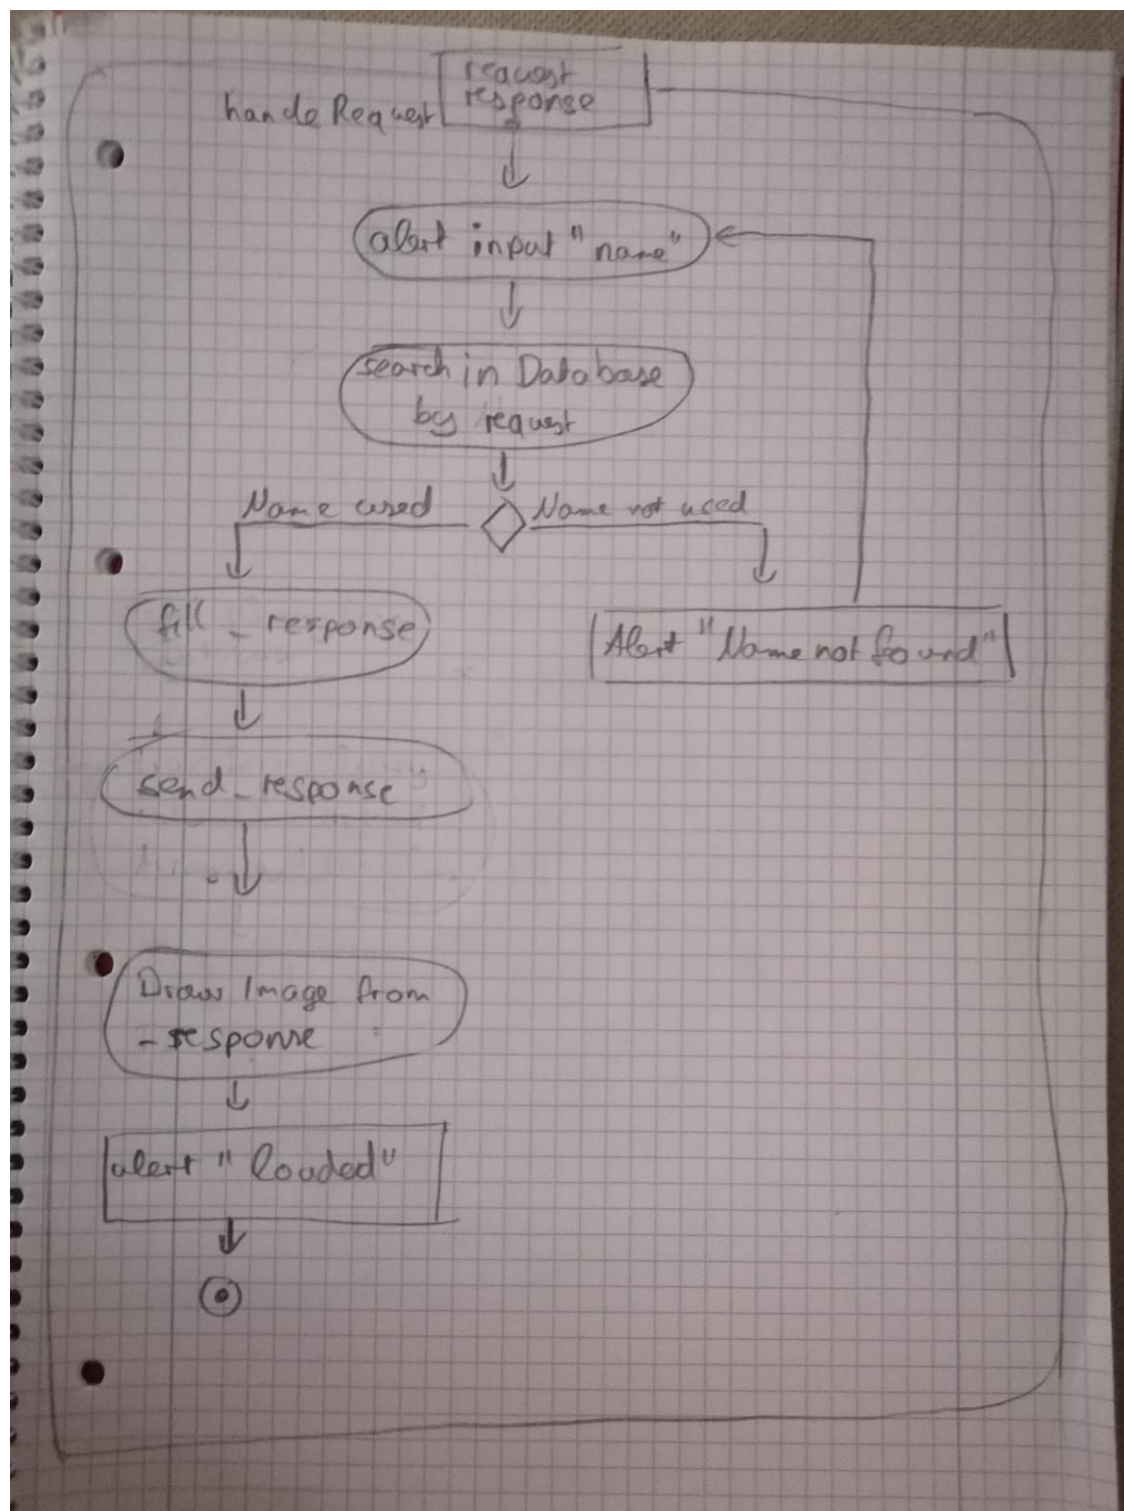 request
response
handeRequest
alert input "name"
search in Database
by request
Name used
Name not used
fill_response
Alert "Name not found"
send_response
Draw Image from
_response
alert "loaded"